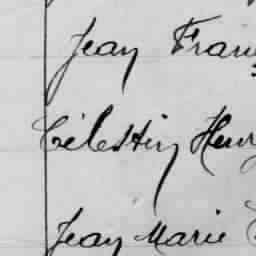 Jean Fran
Célestin Henr
Jean Marie